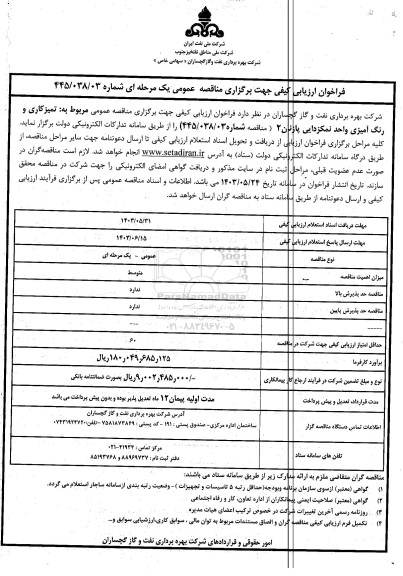 شرکت ملی نفت ایران
شرکت ملی مناطق نفتخیز جنوب
شرکت بهره برداری نفت و گاز گچساران « سهامی خاص »
فراخوان ارزیابی کیفی جهت برگزاری مناقصه عمومی یک مرحله ای شماره ۴۴۵/۰۳۸/۰۳
شرکت بهره برداری نفت و گاز گچساران در نظر دارد فراخوان ارزیابی کیفی جهت برگزاری مناقصه عمومی مربوط به: تمیزکاری و
رنگ آمیزی واحد نمکزدایی پازنان۲ ( مناقصه شماره ۴۴۵/۰۳۸/۰۳) را از طریق سامانه تدارکات الکترونیکی دولت برگزار نماید.
کلیه مراحل برگزاری فراخوان ارزیابی از دریافت و تحویل اسناد استعلام ارزیابی کیفی تا ارسال دعوتنامه جهت سایر مراحل مناقصه، از
طریق درگاه سامانه تدارکات الکترونیکی دولت (ستاد) به آدرس www.setadiran.ir انجام خواهد شد. لازم است مناقصه‌گران در
صورت عدم عضویت قبلی، مراحل ثبت نام در سایت مذکور و دریافت گواهی امضای الکترونیکی را جهت شرکت در مناقصه محقق
سازند. تاریخ انتشار فراخوان در سامانه تاریخ ۱۴۰۳/۰۵/۲۴ می باشد. اطلاعات و اسناد مناقصه عمومی پس از برگزاری فرآیند ارزیابی
کیفی و ارسال دعوتنامه از طریق سامانه ستاد به مناقصه گران ارسال خواهد شد.
مهلت دریافت اسناد استعلام ارزیابی کیفی ۱۴۰۳/۰۵/۳۱
مهلت ارسال پاسخ استعلام ارزیابی کیفی ۱۴۰۳/۰۶/۱۵
نوع مناقصه عمومی - یک مرحله ای
میزان اهمیت مناقصه متوسط
مناقصه حد پذیرش بالا ندارد
مناقصه حد پذیرش پایین ندارد
حداقل امتیاز ارزیابی کیفی جهت شرکت در مناقصه ۶۰
برآورد کارفرما ۱۸۰,۰۴۹,۶۸۵,۱۲۵ ریال
نوع و مبلغ تضمین شرکت در فرآیند ارجاع کار پیمانکاری ۹,۰۰۲,۴۸۵,۰۰۰/- ریال بصورت ضمانتنامه بانکی
مدت قرارداد، تعدیل و پیش پرداخت مدت اولیه پیمان۱۲ ماه، تعدیل پذیر بوده و بدون پیش پرداخت می باشد
اطلاعات تماس دستگاه مناقصه گزار آدرس شرکت بهره برداری نفت و گاز گچساران
ساختمان اداره مرکزی - صندوق پستی : ۱۹۱ - کد پستی : ۷۵۸۱۸۷۳۸۴۹ - تلفن:
تلفن های سامانه ستاد مرکز تماس : ۴۱۹۳۴-۰۲۱
دفتر ثبت نام : ۸۸۹۶۹۷۳۷ و ۸۵۱۹۳۷۶۸
مناقصه گران متقاضی ملزم به ارائه مدارک زیر از طریق سامانه ستاد می باشند:
۱) گواهی (معتبر) ازسوی سازمان برنامه وبودجه(حداقل رتبه ۵ تاسیسات و تجهیزات ) - وضعیت رتبه بندی ازسامانه ساجار استعلام می گردد.
۲) گواهی (معتبر) صلاحیت ایمنی پیمانکاران از اداره تعاون، کار و رفاه اجتماعی
۳) روزنامه رسمی آخرین تغییرات شرکت در خصوص ترکیب اعضای هیات مدیره
۴) تکمیل فرم ارزیابی کیفی مناقصه گران و الصاق مستندات مربوط به توان مالی ، سوابق کاری،ارزشیابی سوابق و...
امور حقوقی و قراردادهای شرکت بهره برداری نفت و گاز گچساران
ParsNamadData
۰۲۱-۸۸۳۴۹۶۷۰-۵